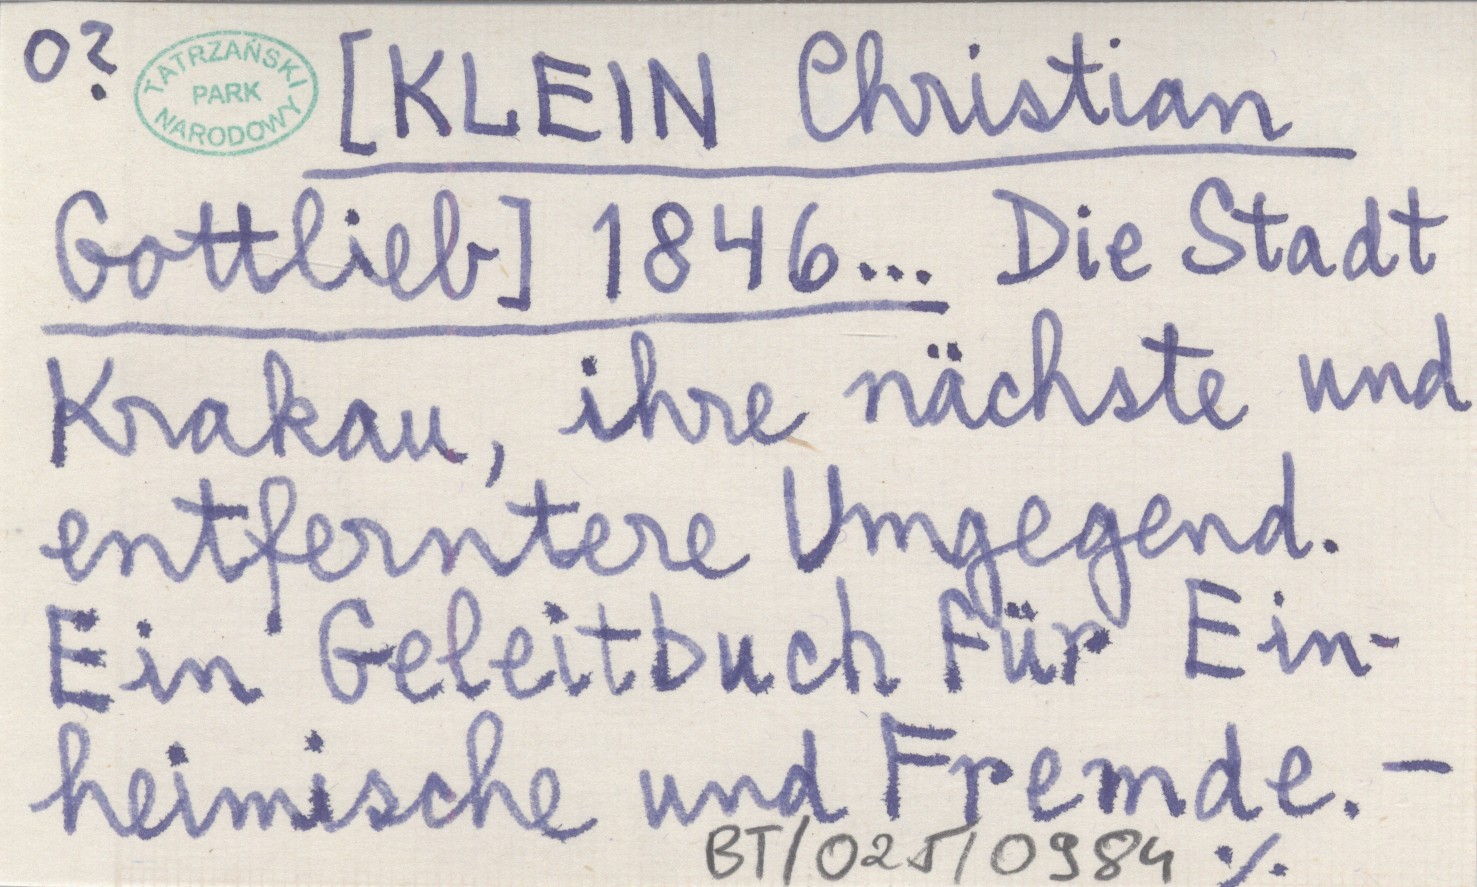 o?
TATRZAŃSKI
PARK
NARODOWY
[KLEIN Christian
Gottlieb] 1846... Die Stadt
Krakau, ihre nächste und
entferntere Umgegend.
Ein Geleitbuch für Ein-
heimische und Fremde. –
BT/025/0984 ·/.